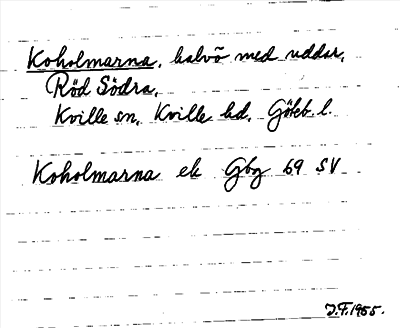 Koholmarna, halvö med uddar,
Röd Södra,
Kville sn, Kville hd, Göteb. l.
Koholmarna ek Gbg 69 SV
J.F. 1955.